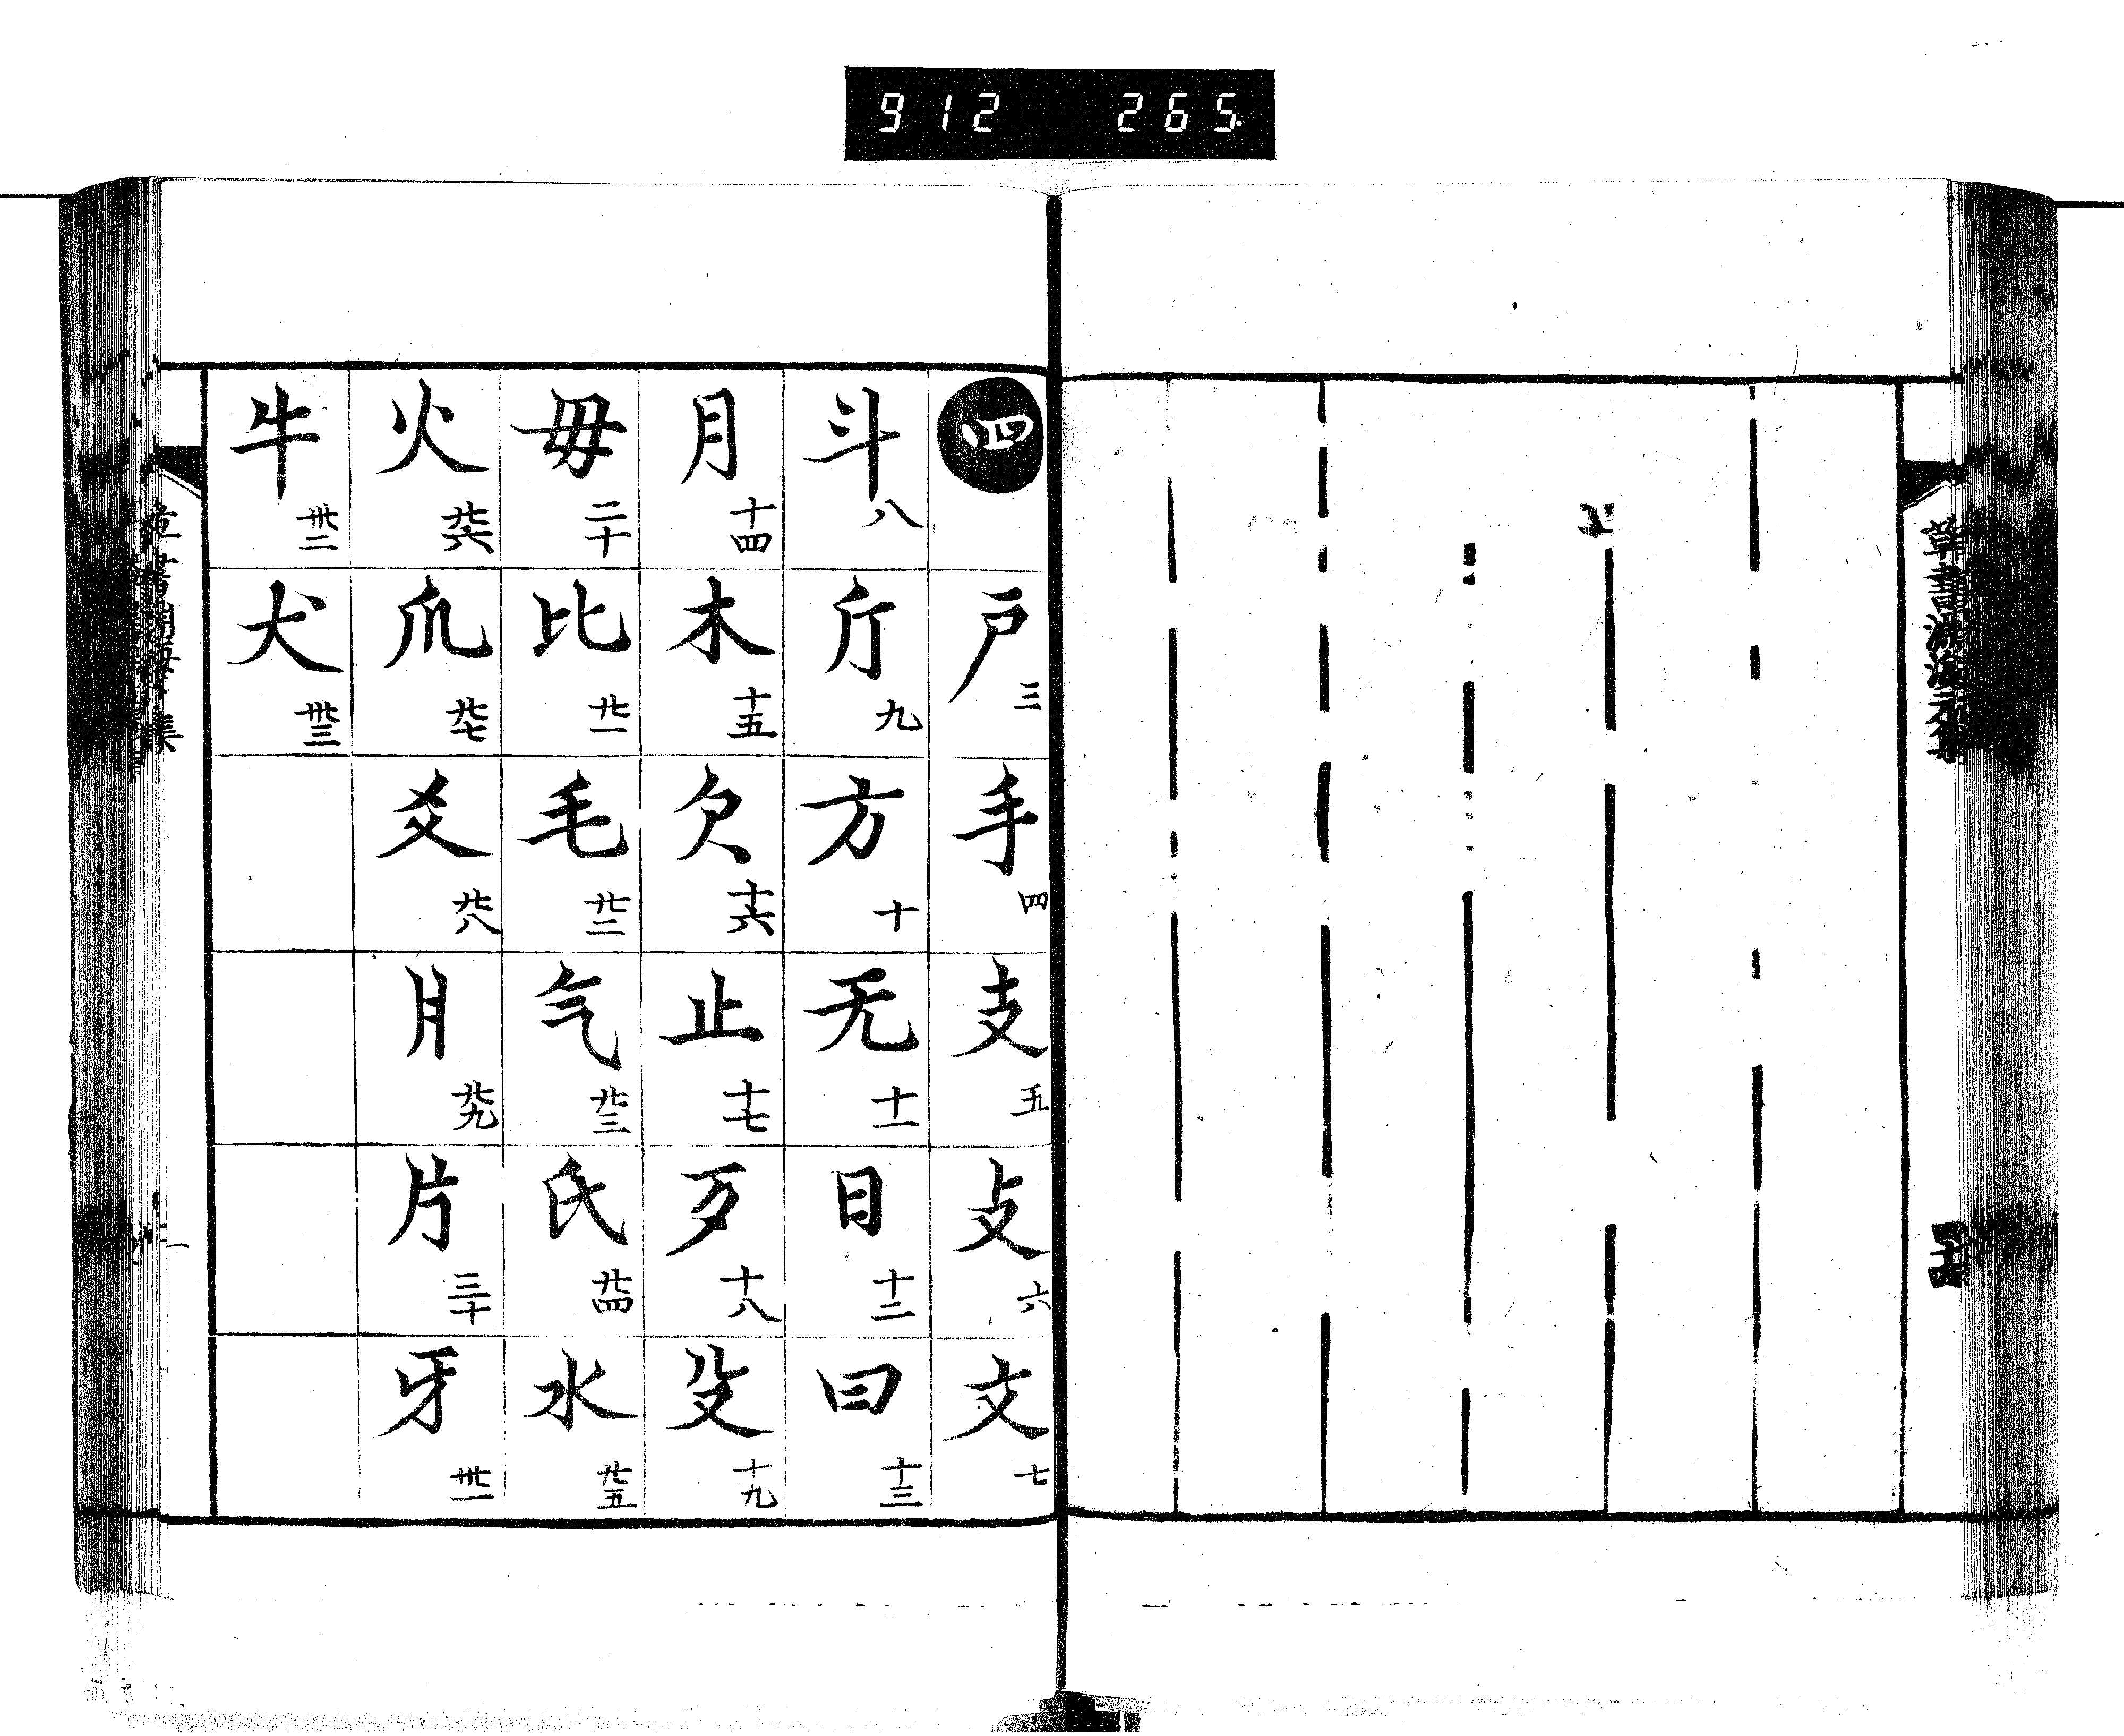 912 265
草書淵海元集
四
戸 三
手 四
支 五
攴 六
文 七
斗 八
斤 九
方 十
无 十一
日 十二
曰 十三
月 十四
木 十五
欠 十六
止 十七
歹 十八
殳 十九
毋 二十
比 廿一
毛 廿二
气 廿三
氏 廿四
水 廿五
火 廿六
爪 廿七
爻 廿八
爿 廿九
片 三十
牙 卅一
牛 卅二
犬 卅三